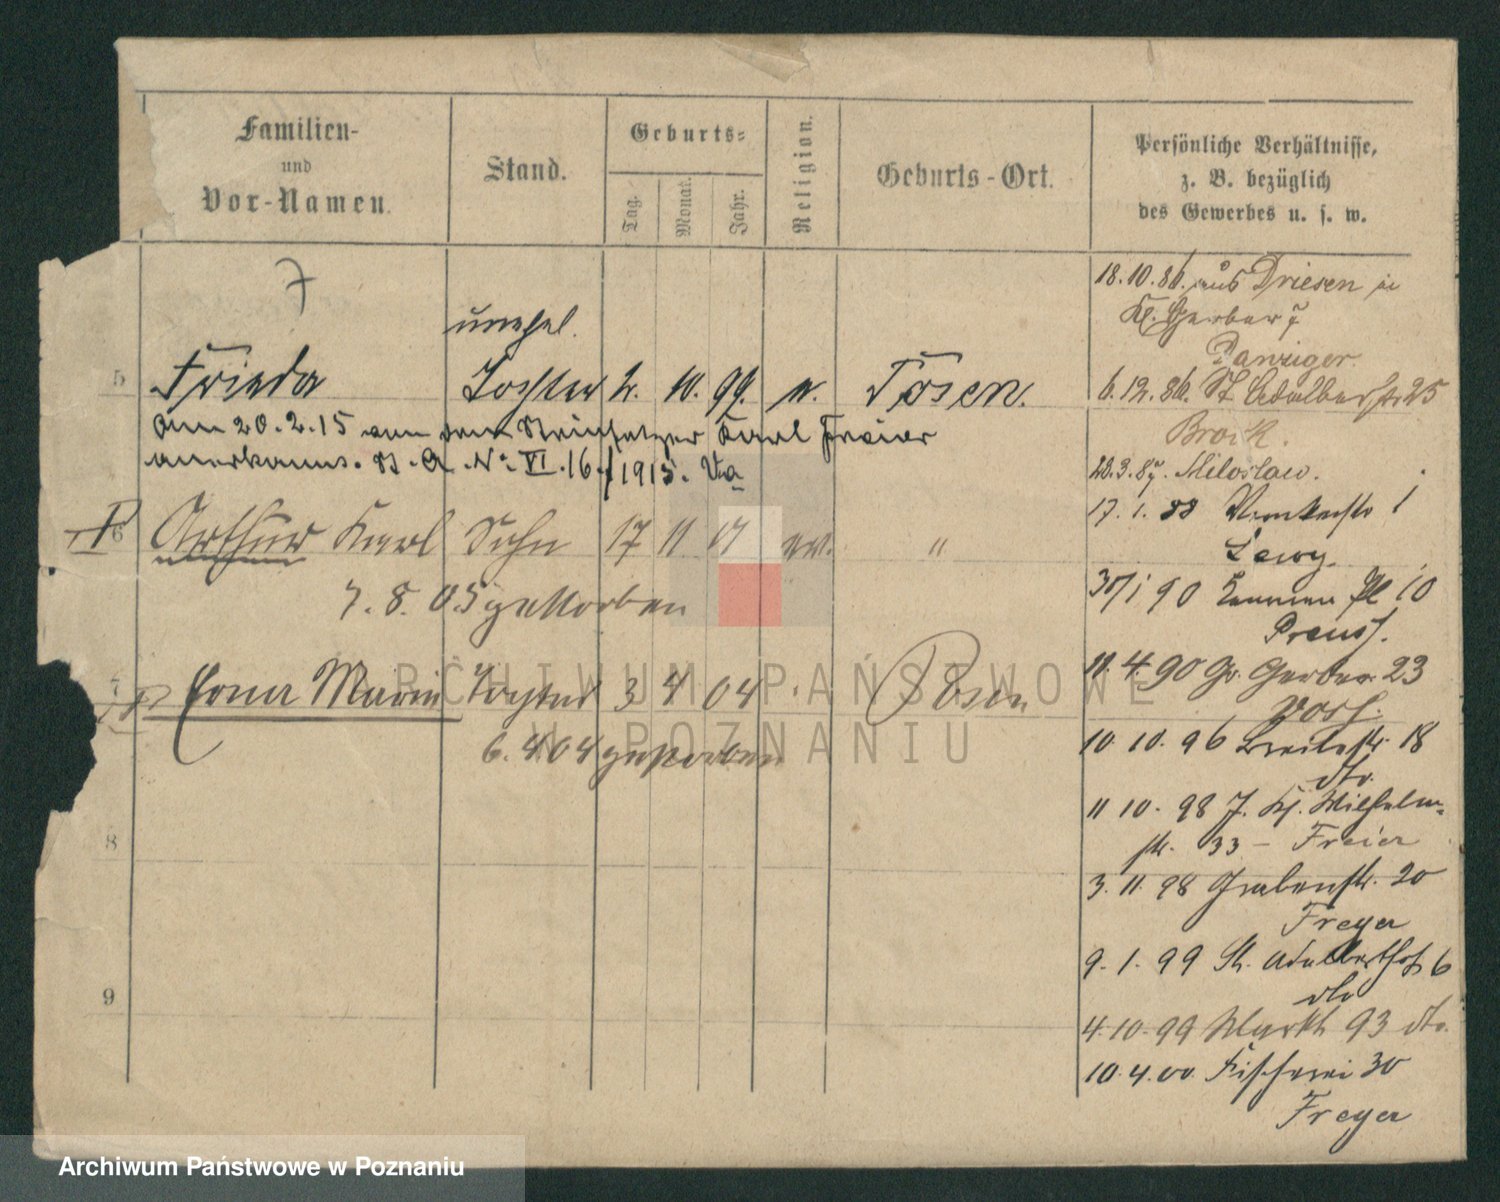 Familien-
und
Vor-Namen.
Stand.
Geburts-
Tag.
Monat.
Jahr.
Religion.
Geburts-Ort.
Persönliche Verhältnisse,
z. B. bezüglich
des Gewerbes u. s. w.
unehel.
5 Frieda Tochter 2. 10. 99. ev. Posen.
Am 20.2.15 von dem Steinsetzer Karl Freier
anerkannt. B. A. No VI. 16./1915. Va
6 Arthur Karl Sohn 17 11 01 ev. "
7. 8. 05 gestorben
7 Erna Marie Tochter 3 4 04 . Posen
6. 4. 04 gestorben
8
9
18.10.86. aus Driesen in
Kl. Gerber 7
Danziger
6.12.86. St. Adalbertstr. 25
Brock.
Miloslaw.
17. 1. 88 1
Lewy.
90 Pl 10
Preuss.
11. 4. 90 Gr. Gerber 23
10. 10. 96 Breitestr. 18
dto.
11 10. 98 Wilhelm-
str. 33 - Freier
3. 11. 98 Grabenstr. 20
Freyer
9. 1. 99 St. Adalbertstr 6
dto
4. 10. 99 Markt 93 dto.
10. 4. 00. Fischerei 30
Freyer
ARCHIWUM PAŃSTWOWE
W POZNANIU
Archiwum Państwowe w Poznaniu